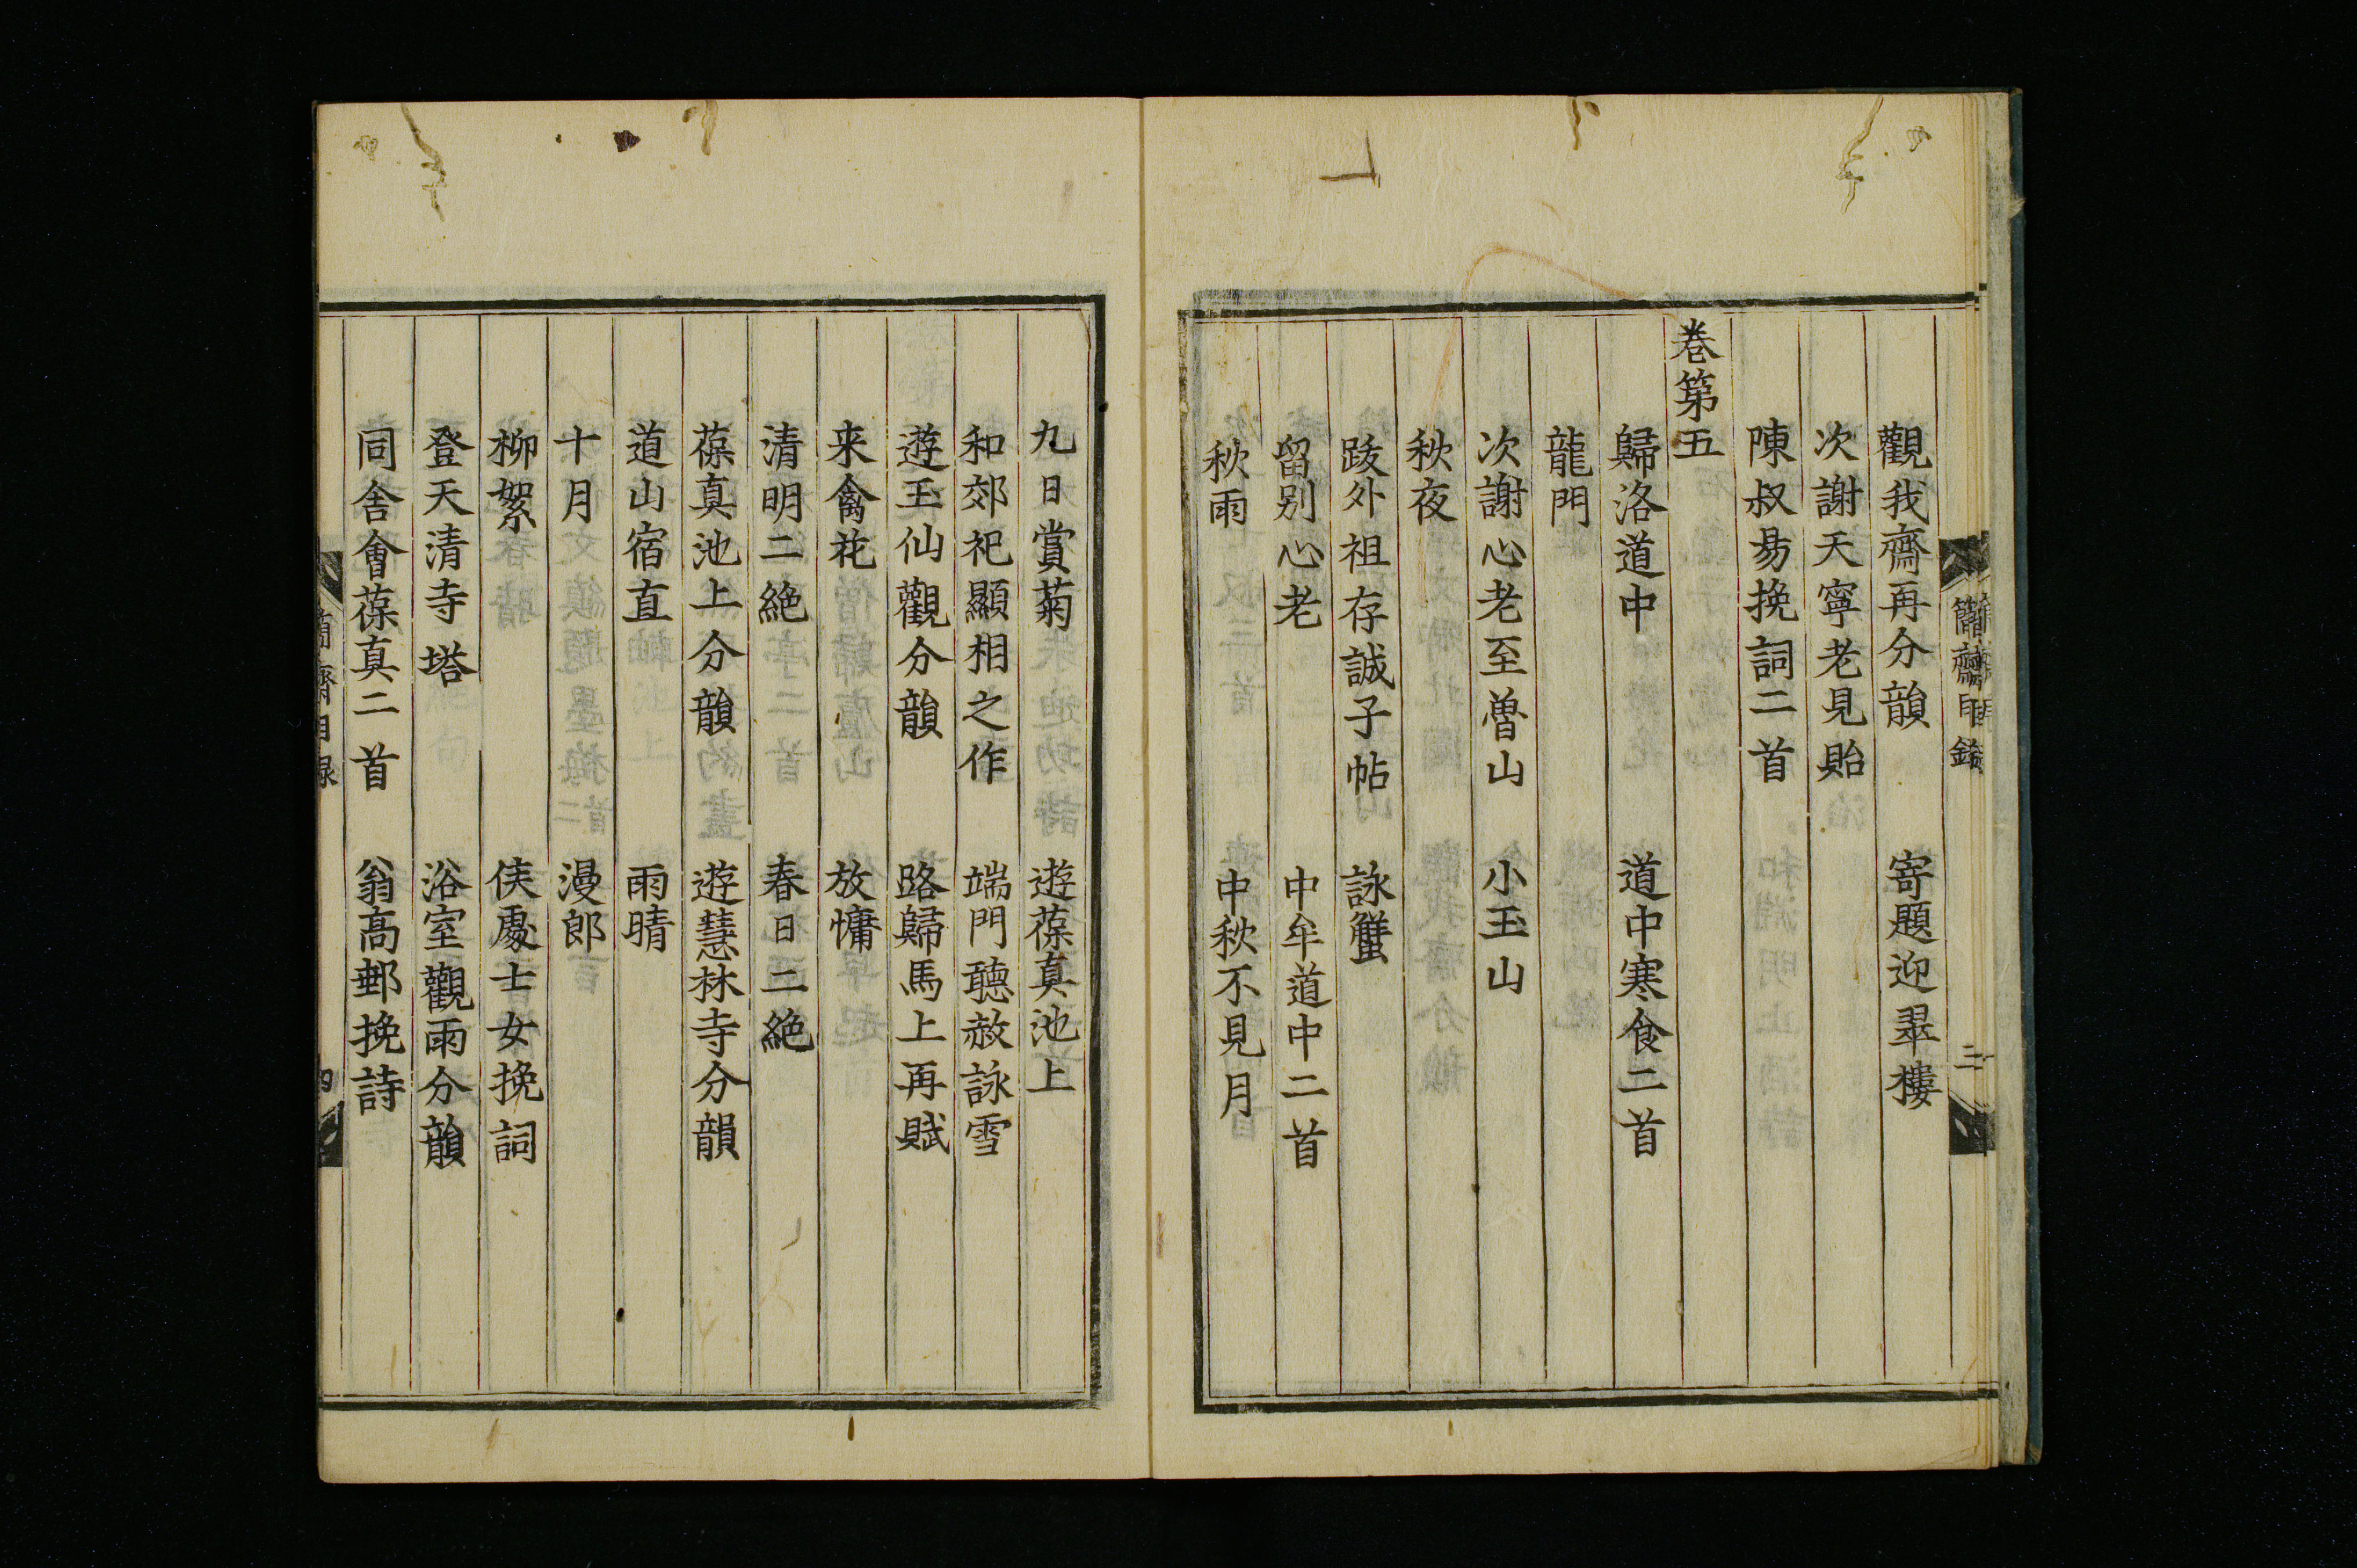 簡齋目錄
三
觀我齋再分韻　寄題迎翠樓
次謝天寧老見貽
陳叔易挽詞二首
卷第五
歸洛道中　道中寒食二首
龍門
次謝心老至魯山　小玉山
秋夜
跋外祖存誠子帖　詠蟹
留别心老　中牟道中二首
秋雨　中秋不見月
九日賞菊　遊葆真池上
和郊祀顯相之作　端門聽赦詠雪
遊玉仙觀分韻　路歸馬上再賦
来禽花　放慵
清明二絶　春日二絶
葆真池上分韻　遊慧林寺分韻
道山宿直　雨晴
十月　漫郎
柳絮　侯處士女挽詞
登天清寺塔　浴室觀雨分韻
同舍會葆真二首　翁高郵挽詩
簡齋目録
四